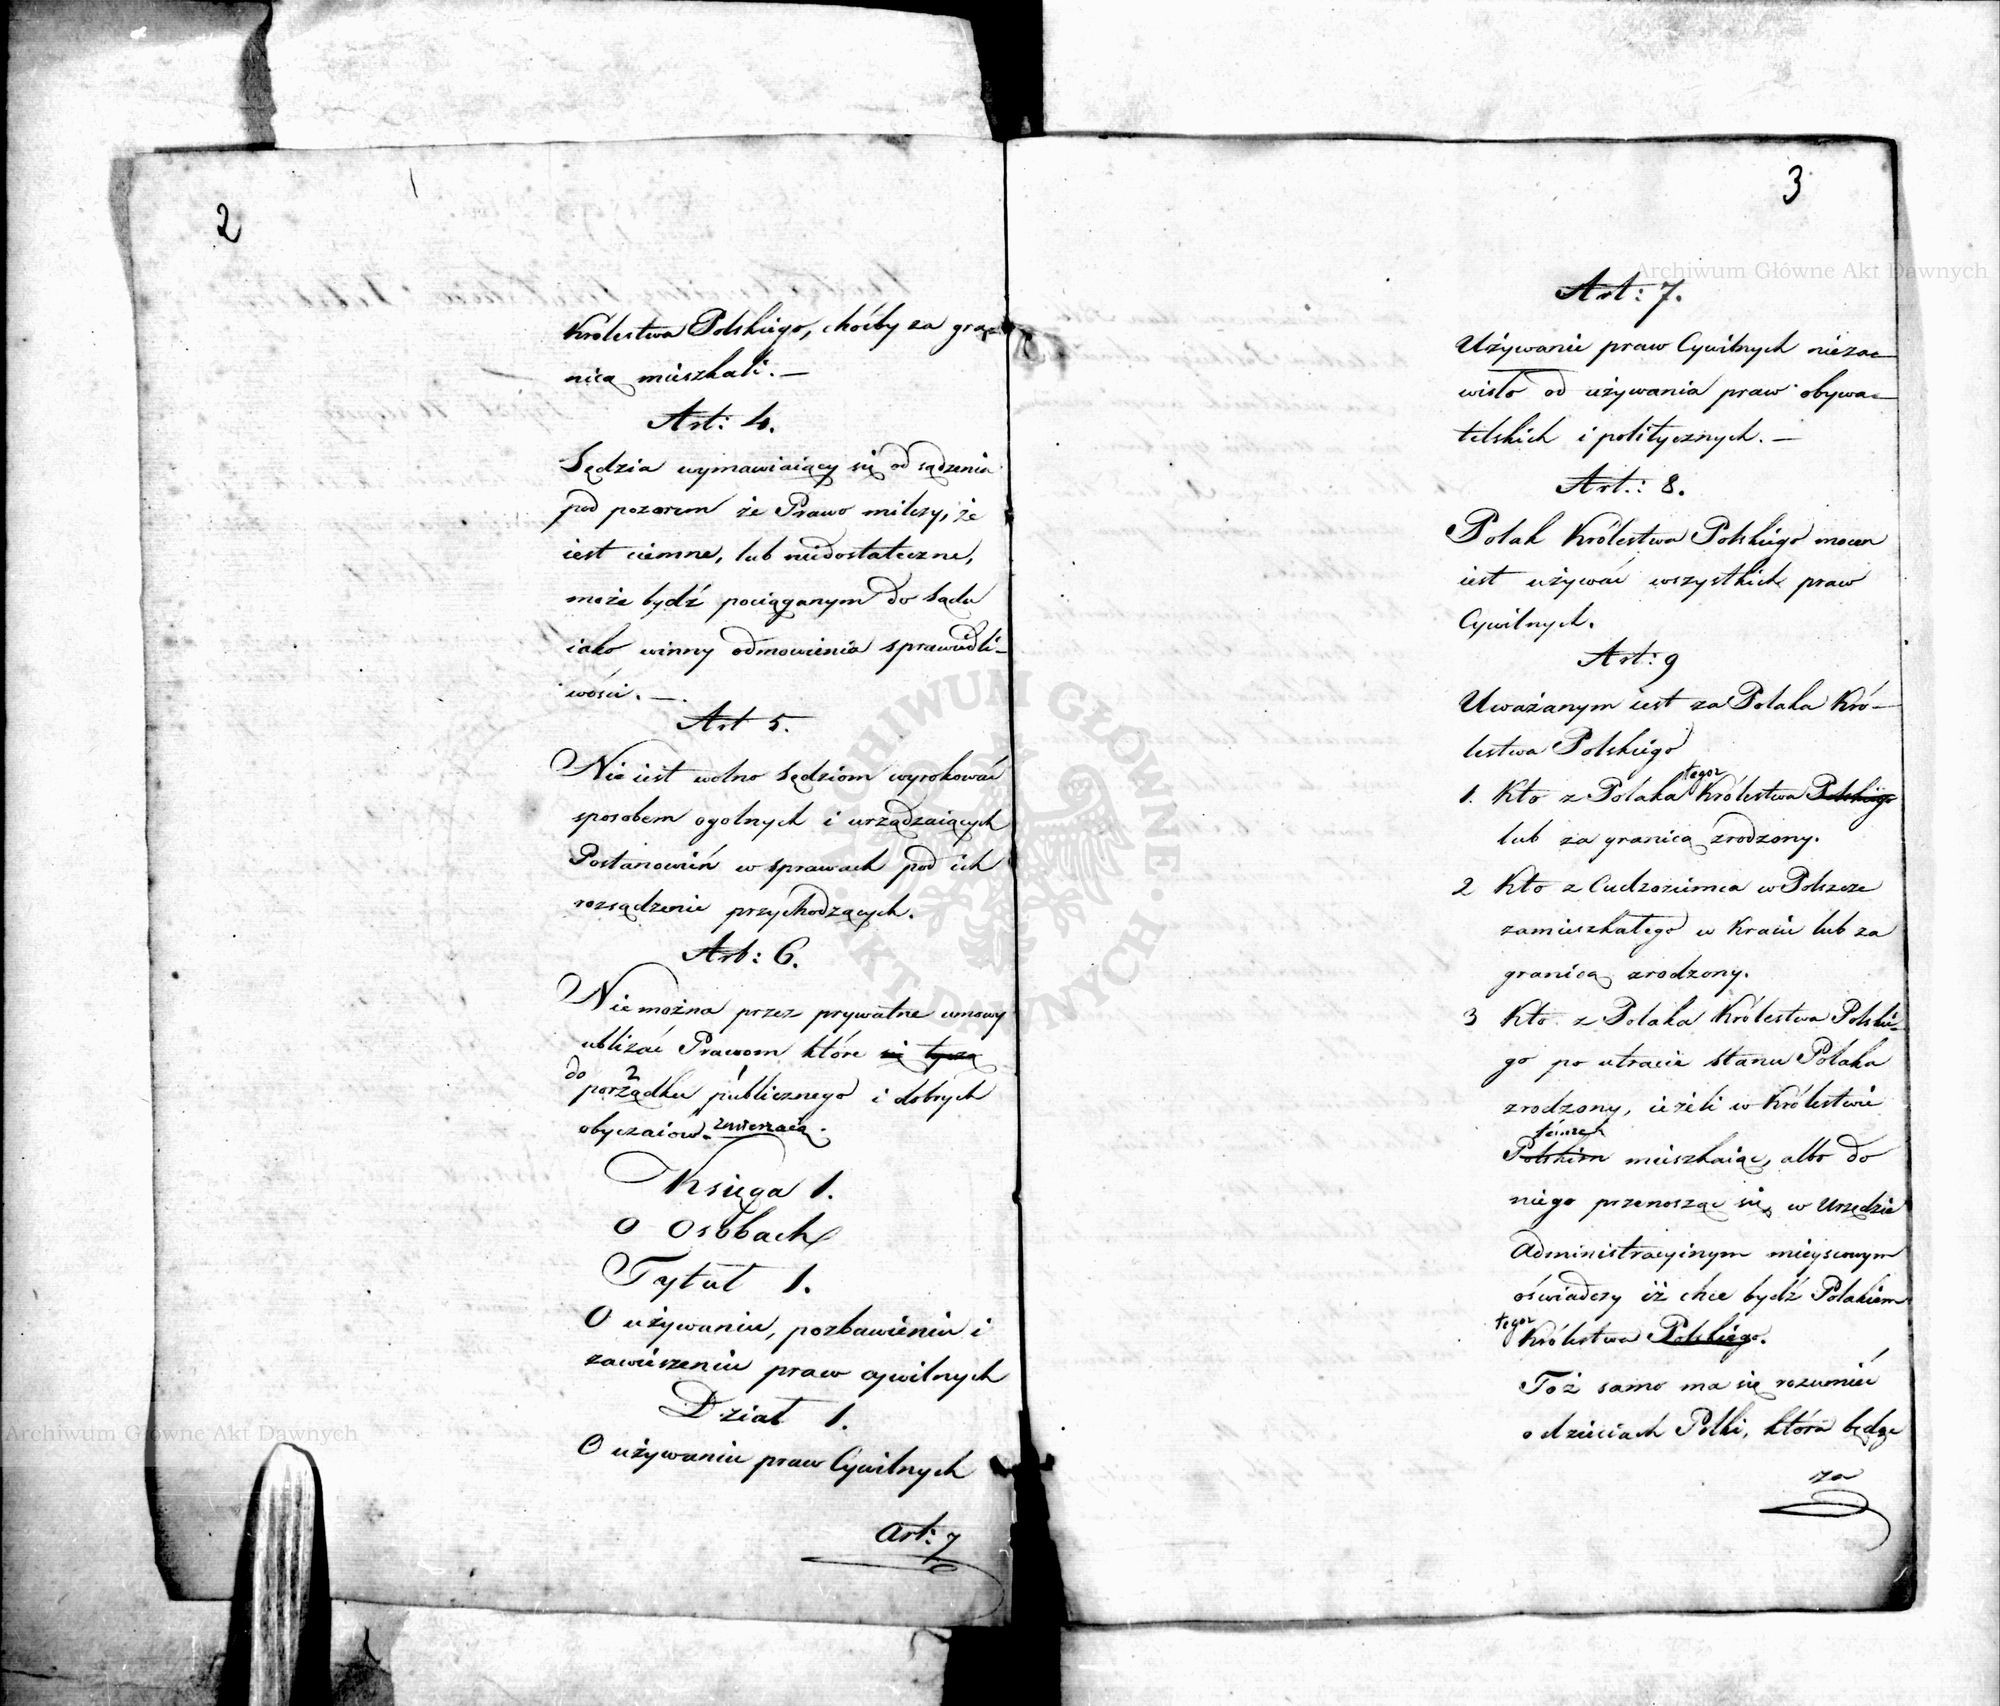 2
Królestwa Polskiego, choćby za gra-
nicą mieszkali. —
Art: 4.
Sędzia wymawiaiący się od sądzenia
pod pozorem że Prawo milczy, że
iest ciemne, lub niedostateczne,
może bydź pociąganym do Sądu
iako winny odmowienia sprawiedli-
wości. —
Art 5.
Nie iest wolno Sędziom wyrokować
sposobem ogolnych i urządzaiących
Postanowień w sprawach pod ich
rozsądzenie przychodzących.
Art: 6.
Nie można przez prywatne umowy
ubliżać Prawom które się tyczą
do 2 1
porządku publicznego i dobrych
obyczaiów. zmierzaią.
Księga 1.
O Osobach
Tytuł 1.
O używaniu, pozbawieniu i
zawieszeniu praw cywilnych
Dział 1.
O używaniu praw Cywilnych
Art: 7
3
Art: 7.
Używanie praw Cywilnych nieza-
wisło od używania praw obywa-
telskich i politycznych. —
Art: 8.
Polak Królestwa Polskiego mocen
iest używać wszystkich praw
Cywilnych.
Art: 9
Uważanym iest za Polaka Kró-
lestwa Polskiego
tegoz
1. Kto z Polaka Królestwa Polskiego
lub za granicą zrodzony.
2 Kto z Cudzoziemca w Polszcze
zamieszkałego w Kraiu lub za
granicą zrodzony.
3 Kto z Polaka Królestwa Polskie-
go po utracie stanu Polaka
zrodzony, ieżeli w Królestwie
Polskiem mieszkaiąc, albo do
niego przenosząc się, w Urzędzie
Administracyinym mieyscowym
oświadczy iż chce bydź Polakiem
tegoz
Królestwa Polskiego.
Toż samo ma się rozumieć
o dzieciach Polki, która będąc
za
Archiwum Główne Akt Dawnych
Archiwum Główne Akt Dawnych
ARCHIWUM GŁÓWNE · AKT DAWNYCH ·